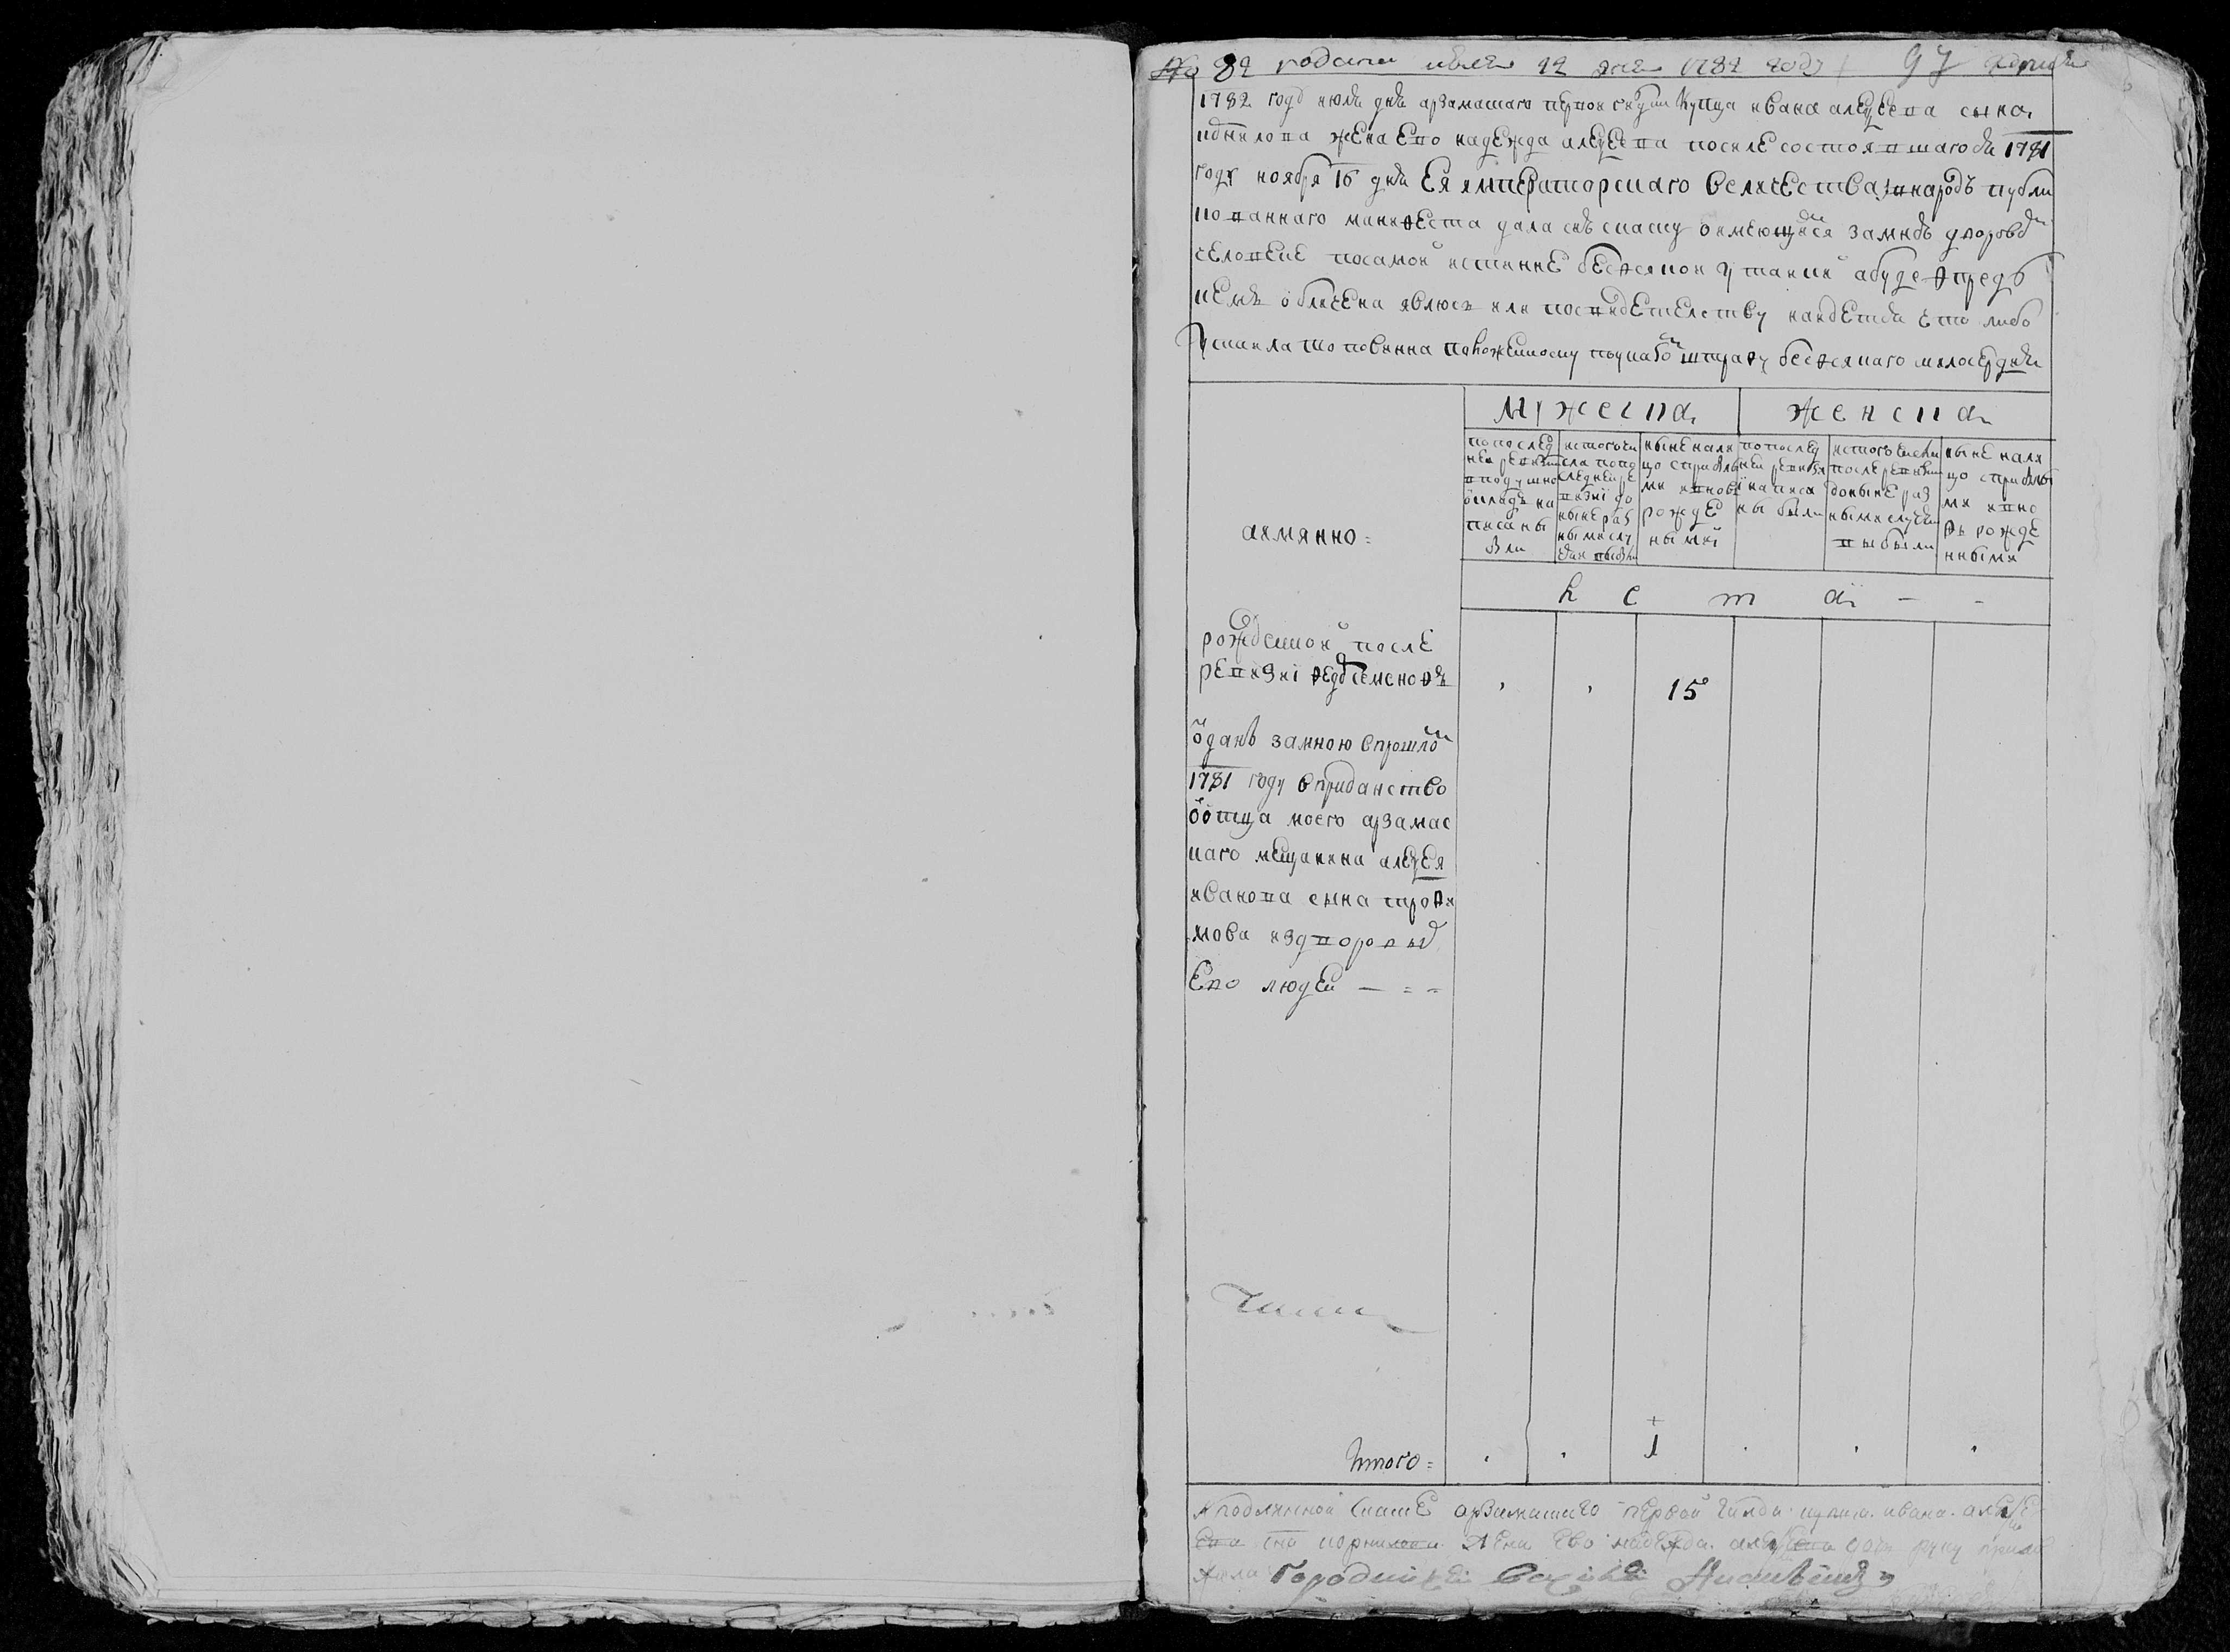 № 82 подана июля 12 дня 1782 году 97
1782 году июля дня арзамаскаго первой гилдии купца ивана алексеева сына
корнилова жена ево надежда алексеева после состоявшагося 1781
году ноября 16 дня Ея императорскаго величества в народъ публи
кованнаго манифеста дала сию скаску о имеющемся за мною дворовом
человеке по самой истинне безо всякой утайки а буде впредь
чемъ обличена явлюсь или по свидетелству найдется что либо
утаила то повинна положенному по указом штрафу безо всякаго милосердия
мужеска женска
а имянно =
по послед
ней ревизии
в подушной
окладъ на
писаны
были
ис того чи
сла по по
следней ре
визиї до
ныне раз
ными слу
чаи выбыли
ныне нали
цо с прибылы
ми и вновь
рожде
ными
по послед
ней ревизиї
написа
ны были
ис того числа
после ревизии
до ныне раз
ными случаи
выбыли
ныне нали
цо с прибылы
ми и вно
вь рожде
нными
л е т а
рожденной после
ревизиї федор семеновъ 15
отданъ за мною в прошлом
1781 году в приданство
от отца моего арзамас
каго мещанина алексея
иванова сына трофи
мова из дворовых
ево людей
Итого = 1
К подлинной скаске арзамаскаго первой гилди купца ивана алексе
ева сна корнилова жена ево надежда алексеева руку прило
жила Городничей